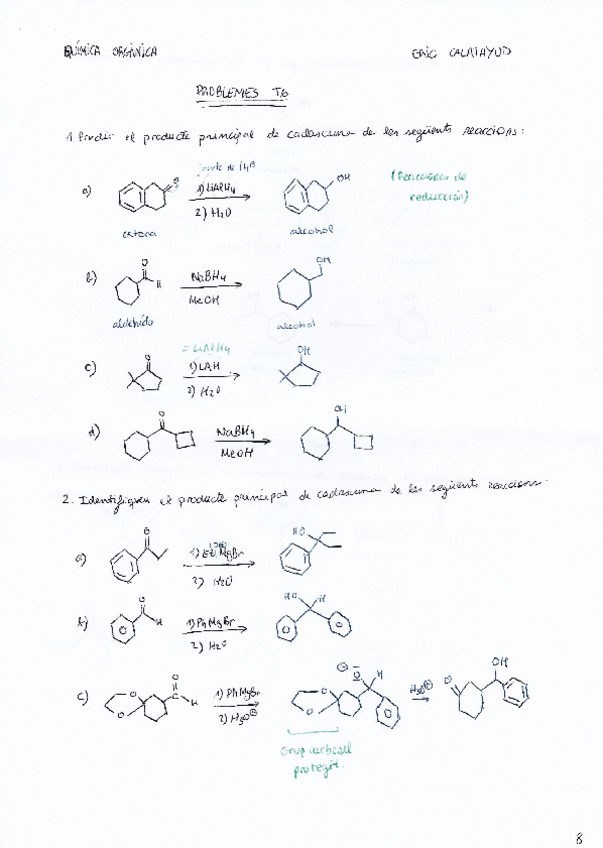 QUÍMICA ORGÀNICA ERIC CALATAYUD
PROBLEMES T6
1. Predir el producte principal de cadascuna de les següents reaccions:
a) O 1) LiAlH4 OH (Reacciones de
2) H2O reducción)
cetona alcohol
b) O H NaBH4 OH
MeOH
aldehído alcohol
= LiAlH4
c) O 1) LAH OH
2) H2O
d) O NaBH4 OH
MeOH
2. Identifiqueu el producte principal de cadascuna de les següents reaccions:
a) O 1) EtMgBr HO
2) H2O
b) O H 1) PhMgBr HO H
2) H2O
c) O O O H 1) PhMgBr O O O H H3O⊕ O OH
2) H3O⊕
Grup carbonil
protegit.
8